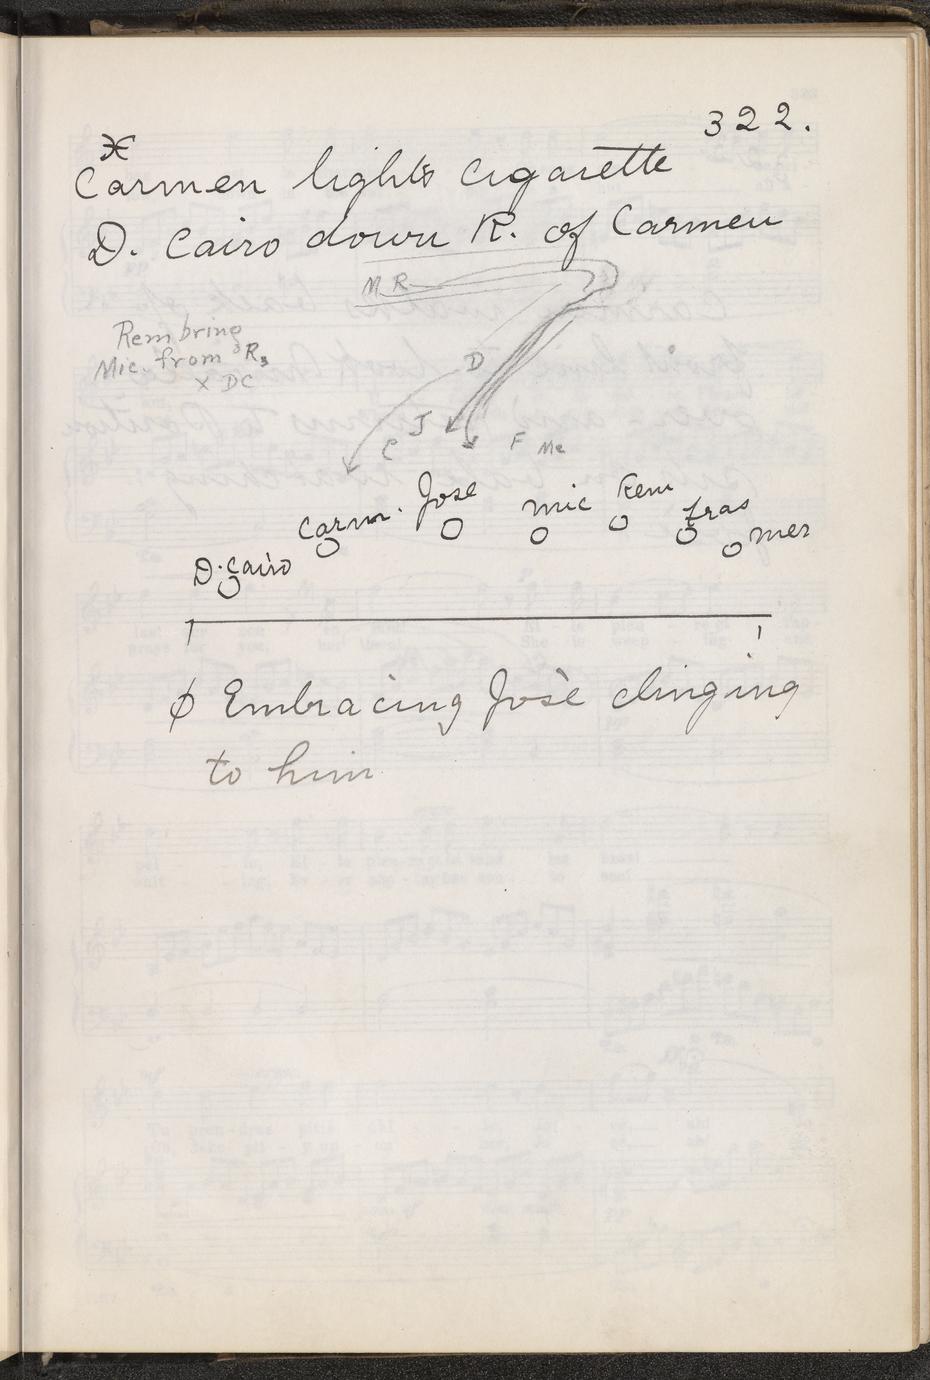 322.
Carmen lights cigarette
D. Cairo down R. of Carmen
M R
Rem bring
Mic. from R3
X DC
D
J
C
F Me
Carm. José mic Rem fras mer
D. Cairo
ϕ Embracing José clinging
to him